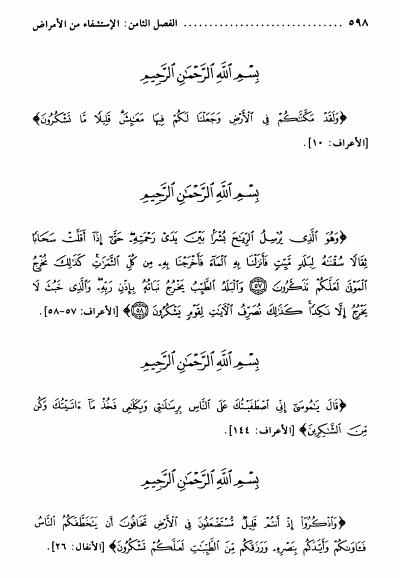 ٥٩٨ .............................. الفصل الثامن: الإستشفاء من الأمراض
بِسْمِ ٱللَّهِ ٱلرَّحْمَٰنِ ٱلرَّحِيمِ
﴿وَلَقَدْ مَكَّنَّـٰكُمْ فِى ٱلْأَرْضِ وَجَعَلْنَا لَكُمْ فِيهَا مَعَـٰيِشَ ۗ قَلِيلًا مَّا تَشْكُرُونَ﴾
[الأعراف: ١٠].
بِسْمِ ٱللَّهِ ٱلرَّحْمَٰنِ ٱلرَّحِيمِ
﴿وَهُوَ ٱلَّذِى يُرْسِلُ ٱلرِّيَـٰحَ بُشْرًۢا بَيْنَ يَدَىْ رَحْمَتِهِۦ ۖ حَتَّىٰٓ إِذَآ أَقَلَّتْ سَحَابًا
ثِقَالًا سُقْنَـٰهُ لِبَلَدٍ مَّيِّتٍ فَأَنزَلْنَا بِهِ ٱلْمَآءَ فَأَخْرَجْنَا بِهِۦ مِن كُلِّ ٱلثَّمَرَٰتِ ۚ كَذَٰلِكَ نُخْرِجُ
ٱلْمَوْتَىٰ لَعَلَّكُمْ تَذَكَّرُونَ ۝٥٧ وَٱلْبَلَدُ ٱلطَّيِّبُ يَخْرُجُ نَبَاتُهُۥ بِإِذْنِ رَبِّهِۦ ۖ وَٱلَّذِى خَبُثَ لَا
يَخْرُجُ إِلَّا نَكِدًا ۚ كَذَٰلِكَ نُصَرِّفُ ٱلْـَٔايَـٰتِ لِقَوْمٍ يَشْكُرُونَ ۝٥٨﴾ [الأعراف: ٥٧-٥٨].
بِسْمِ ٱللَّهِ ٱلرَّحْمَٰنِ ٱلرَّحِيمِ
﴿قَالَ يَـٰمُوسَىٰٓ إِنِّى ٱصْطَفَيْتُكَ عَلَى ٱلنَّاسِ بِرِسَـٰلَـٰتِى وَبِكَلَـٰمِى فَخُذْ مَآ ءَاتَيْتُكَ وَكُن
مِّنَ ٱلشَّـٰكِرِينَ﴾ [الأعراف: ١٤٤].
بِسْمِ ٱللَّهِ ٱلرَّحْمَٰنِ ٱلرَّحِيمِ
﴿وَٱذْكُرُوٓا۟ إِذْ أَنتُمْ قَلِيلٌ مُّسْتَضْعَفُونَ فِى ٱلْأَرْضِ تَخَافُونَ أَن يَتَخَطَّفَكُمُ ٱلنَّاسُ
فَـَٔاوَىٰكُمْ وَأَيَّدَكُم بِنَصْرِهِۦ وَرَزَقَكُم مِّنَ ٱلطَّيِّبَـٰتِ لَعَلَّكُمْ تَشْكُرُونَ﴾ [الأنفال: ٢٦].